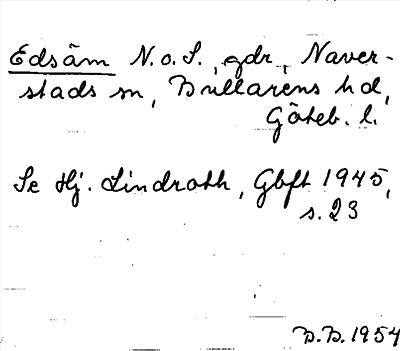 Edsäm N. o. S., gdr, Naver-
stads sn, Bullarens hd,
Göteb. l.
Se Hj. Lindroth, Gbft 1945,
s. 23
B.B. 1954